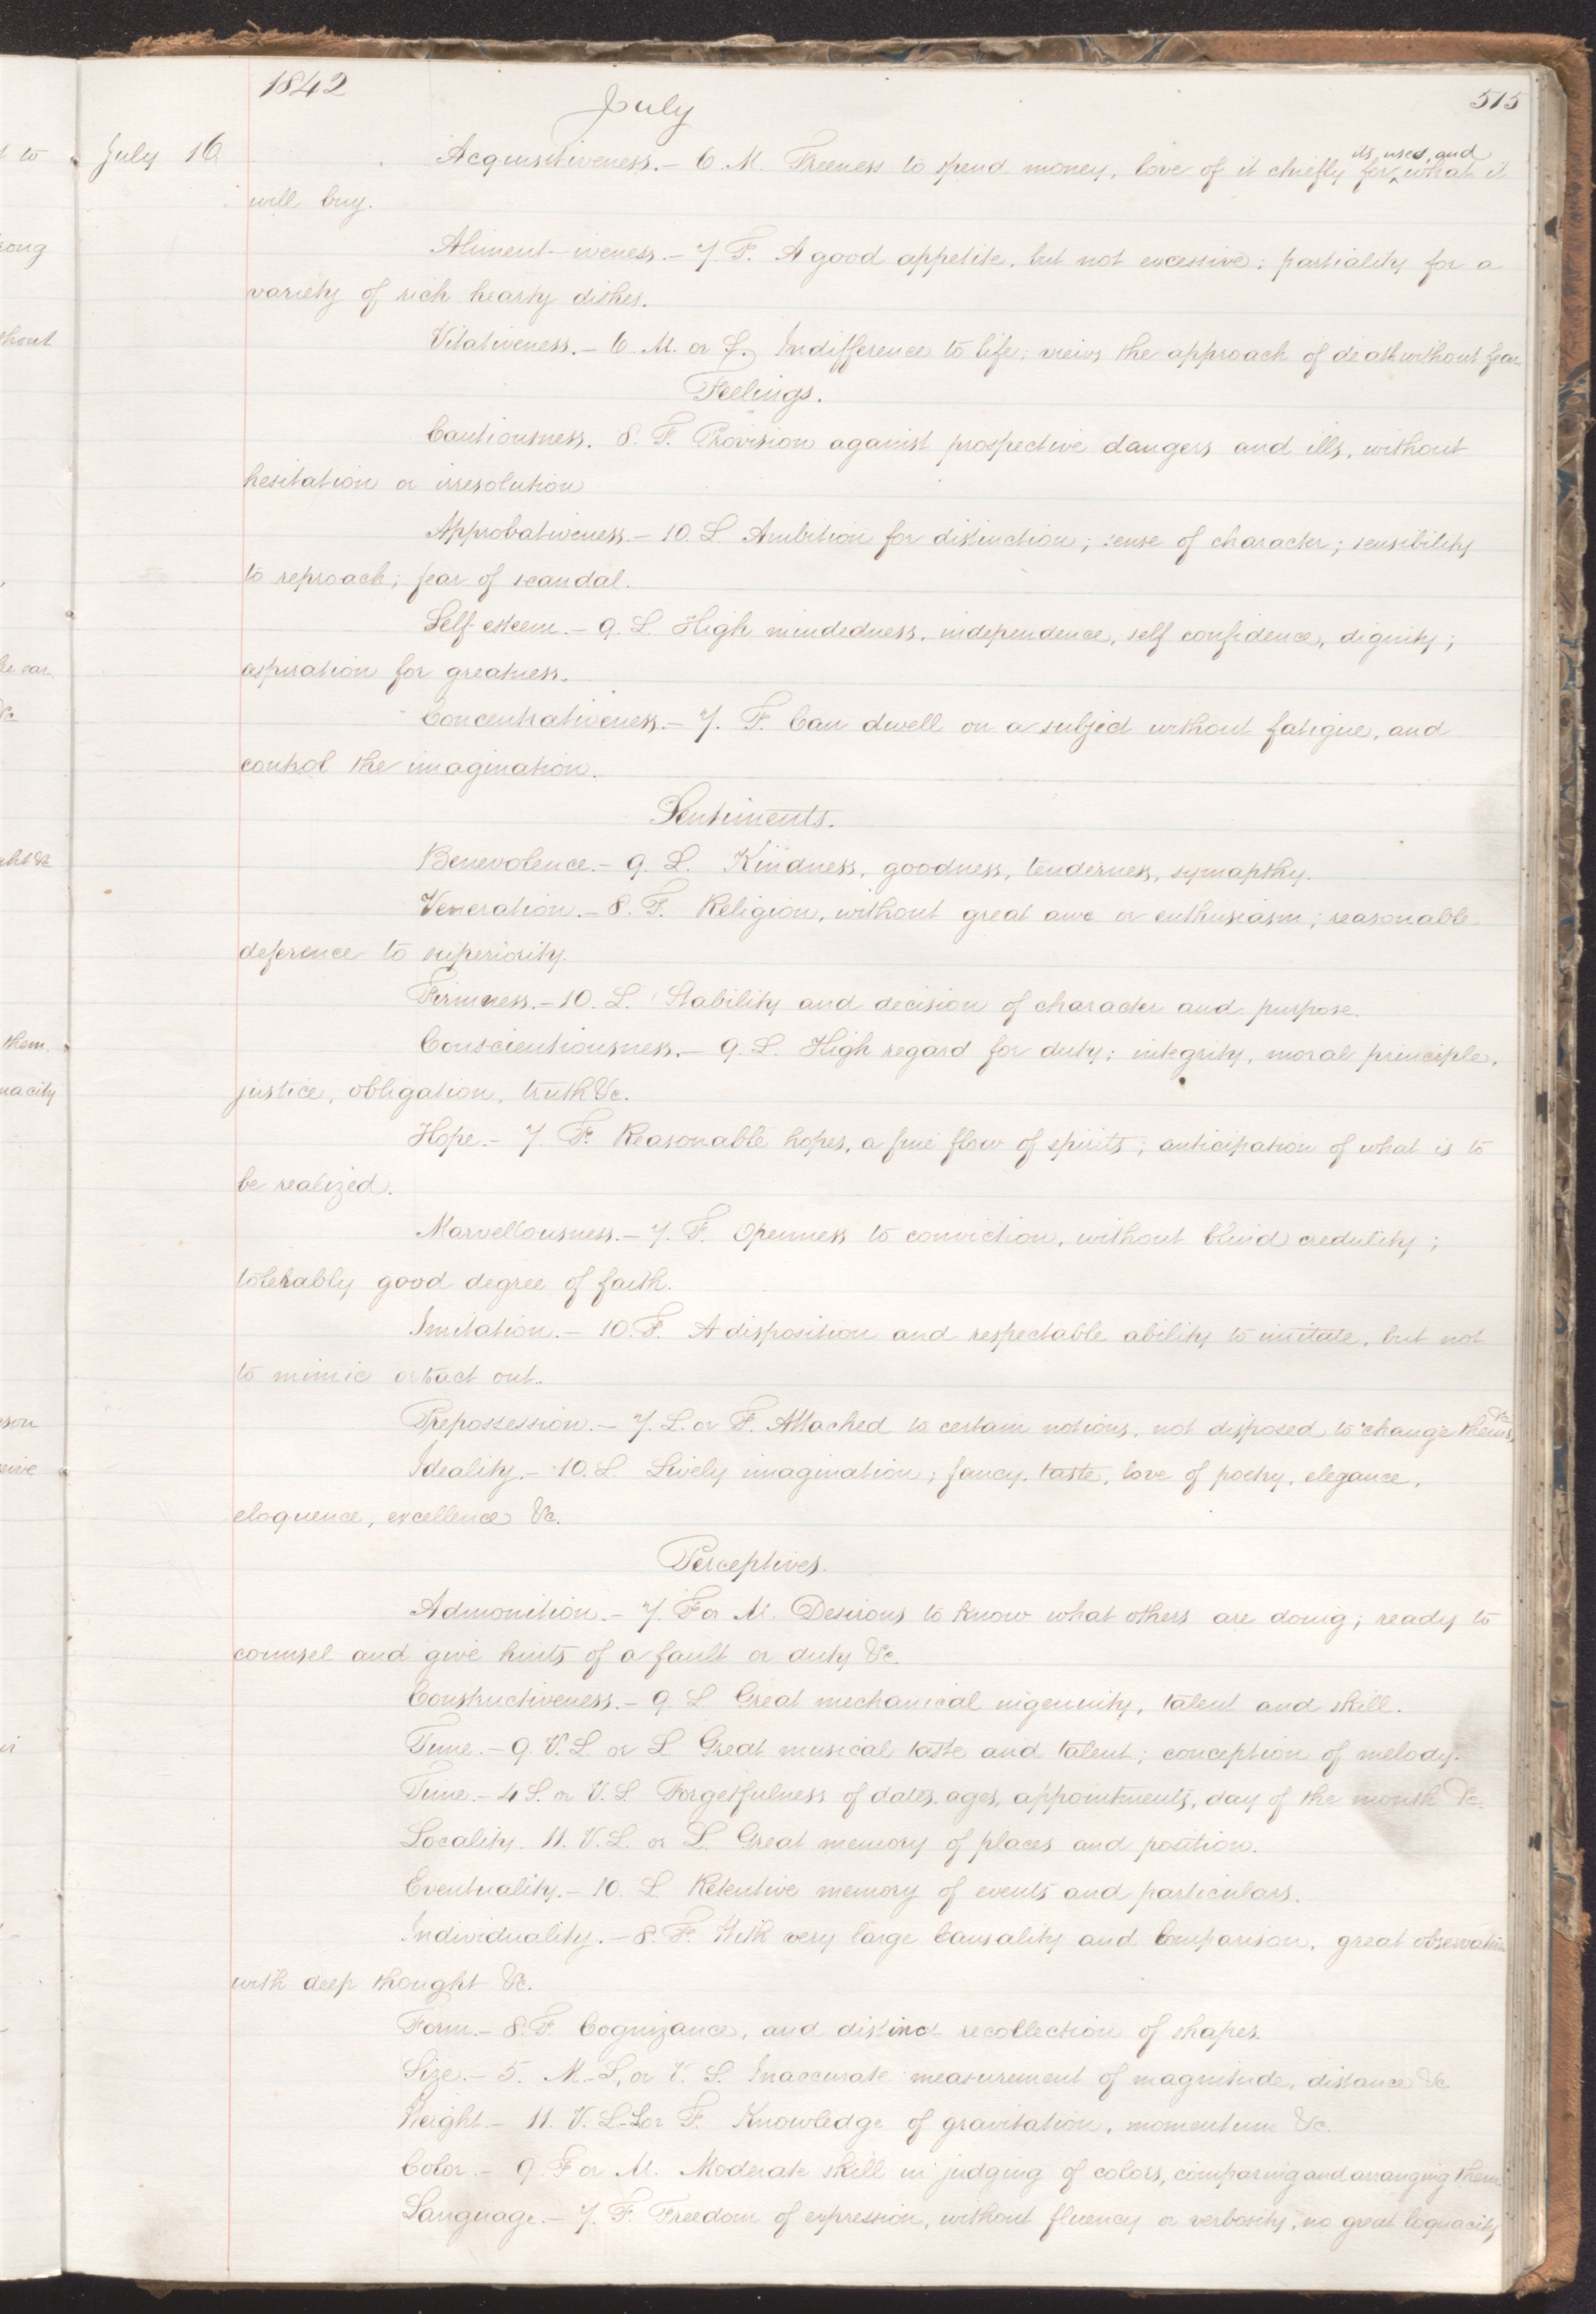 1842
July
515
July 16
Acquisitiveness.- 6. M. Freeness to spend money, love of it chiefly for its uses, and what it
will buy.
Aliment-iveness.- 7. F. A good appetite, but not excessive; partiality for a
variety of rich hearty dishes.
Vitativeness.- 6. M. or F. Indifference to life; views the approach of death without fear
Feelings.
Cautiousness. 8. F. Provision against prospective dangers and ills, without
hesitation or irresolution
Approbativeness.- 10. L. Ambition for distinction; sense of character; sensibility
to reproach; fear of scandal.
Self esteem.- 9. L. High mindedness, independence, self confidence, dignity;
aspiration for greatness.
Concentrativeness.- 7. F. Can dwell on a subject without fatigue, and
control the imagination.
Sentiments.
Benevolence.- 9. L. Kindness, goodness, tenderness, symapthy.
Veneration.- 8. F. Religion, without great awe or enthusiasm; reasonable
deference to superiority.
Firmness.- 10. L. Stability and decision of character and purpose.
Conscientiousness.- 9. L. High regard for duty; integrity, moral principle,
justice, obligation, truth &c.
Hope.- 7. F. Reasonable hopes, a fine flow of spirits; anticipation of what is to
be realized.
Marvellousness.- 7. F. Openness to conviction, without blind credulity;
tolerably good degree of faith.
Imitation.- 10. F. A disposition and respectable ability to imitate, but not
to mimic or to act out.
Prepossession.- 7. L. or F. Attached to certain notions, not disposed to change them &c
Ideality.- 10. L. Lively imagination; fancy, taste, love of poetry, elegance,
eloquence, excellence &c.
Perceptives.
Admonition.- 7. F or M. Desirous to know what others are doing; ready to
counsel and give hints of a fault or duty &c.
Constructiveness.- 9. L Great mechanical ingenuity, talent and skill.
Tune.- 9. V. L. or L. Great musical taste and talent; conception of melody.
Time.- 4 S. or V. L Forgetfulness of dates, ages, appointments, day of the month &c.
Locality. 11. V. L. or L. Great memory of places and position.
Eventuality.- 10. L. Retentive memory of events and particulars.
Individuality.- 8. F. With very large Causality and Comparison, great observation
with deep thought &c.
Form.- 8. F. Cognizance, and distinct recollection of shapes.
Size.- 5. M-S, or V. S. Inaccurate measurement of magnitude, distance &c
Weight.- 11. V. L-L or F. Knowledge of gravitation, momentum &c.
Color.- 9. F or M. Moderate skill in judging of colors, comparing and arranging them.
Language.- 7. F. Freedom of expression, without fluency or verbosity, no great loquacity